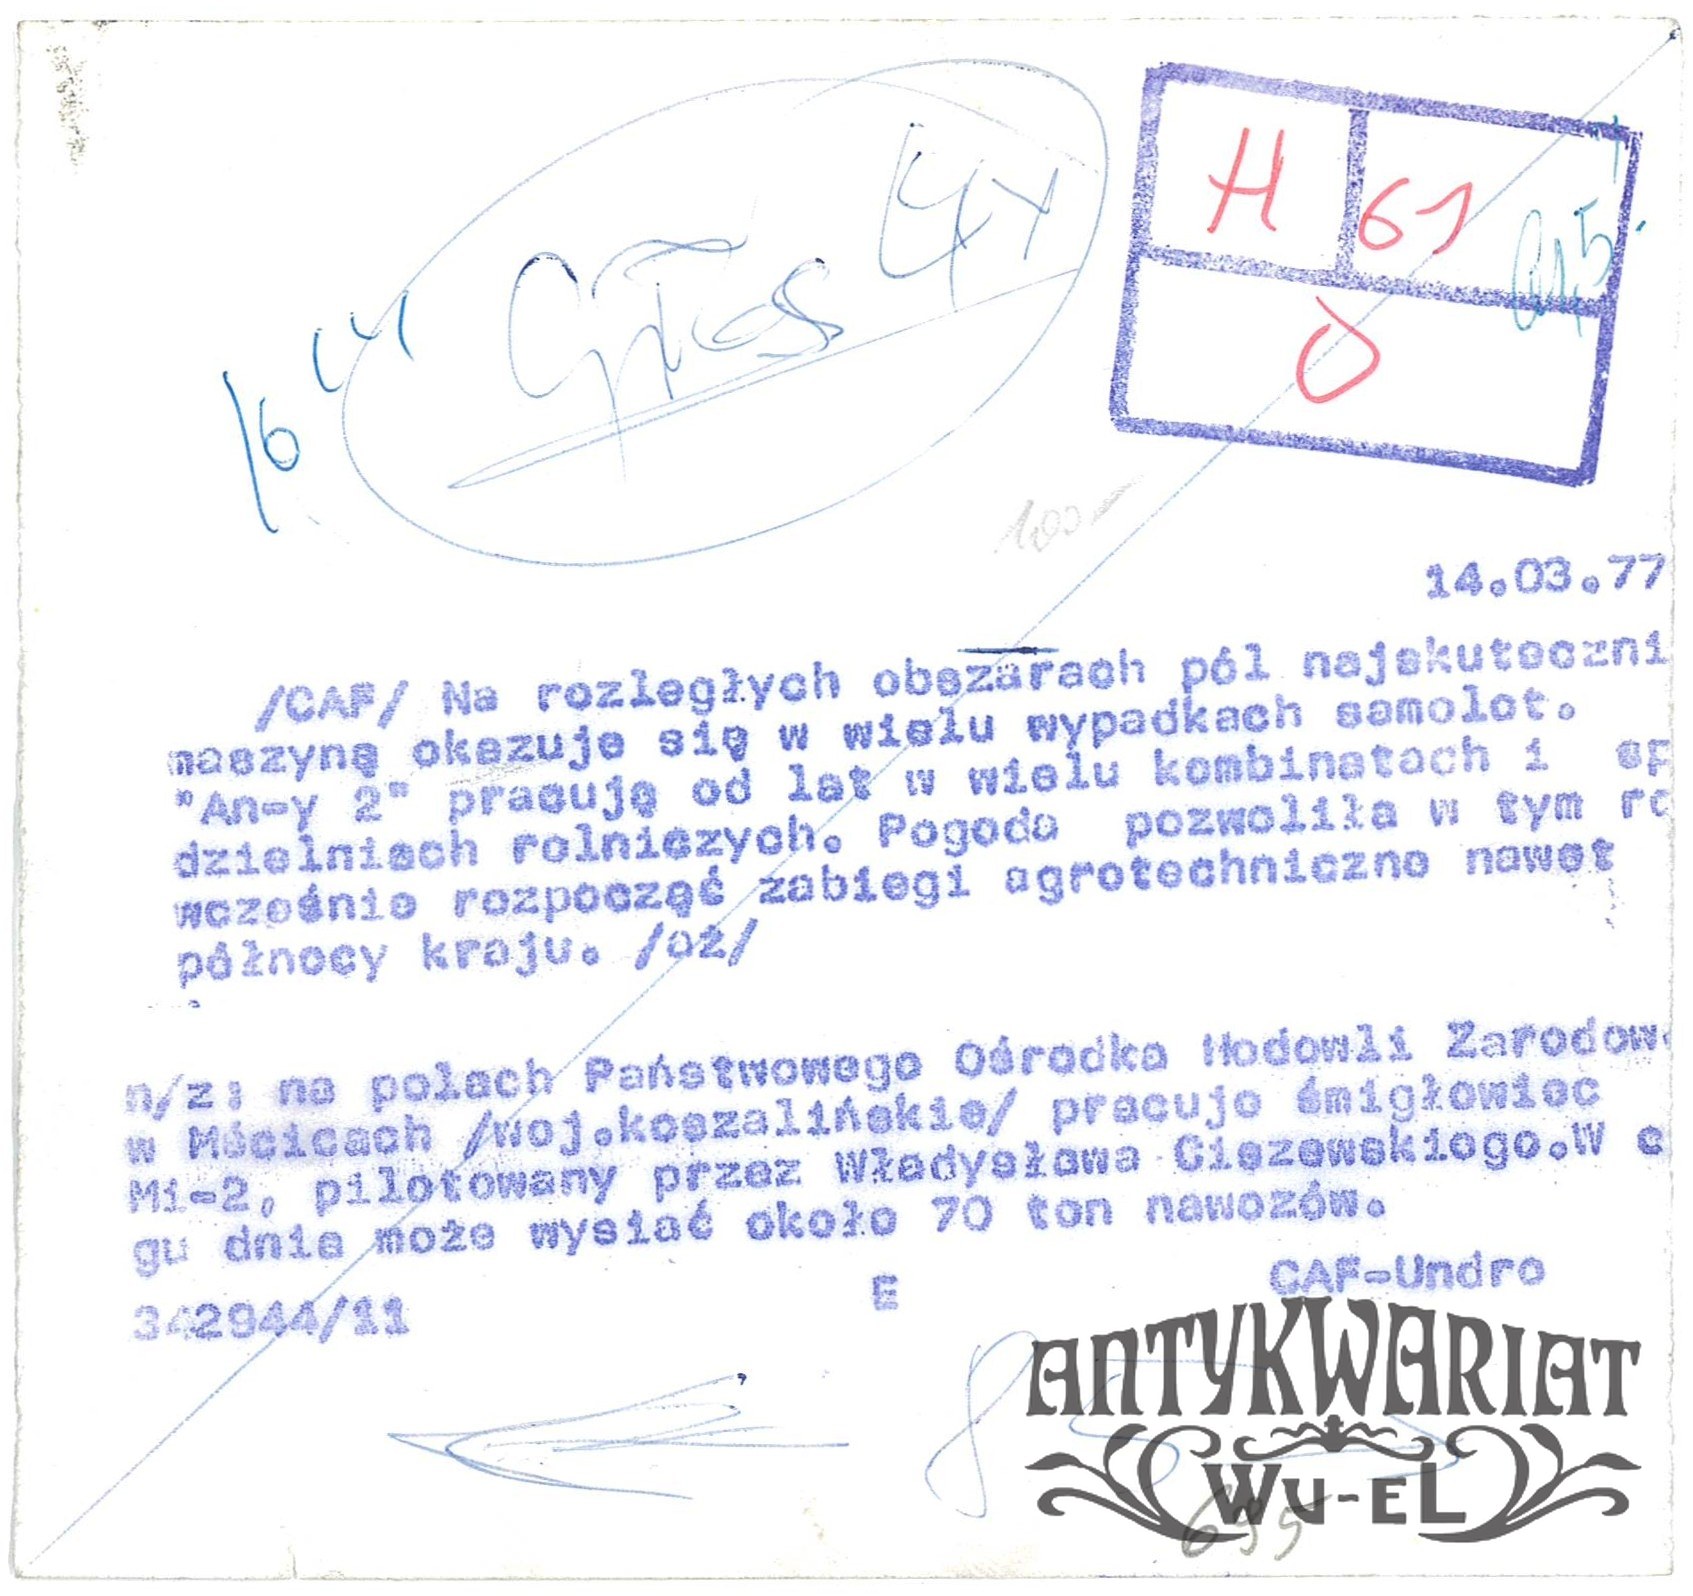 H 61
0
16
4x
100
14.03.77
/CAF/ Na rozległych obszarach pól najskuteczni
maszyną okazuje się w wielu wypadkach samolot.
"An-y 2" pracują od lat w wielu kombinatach i sp
dzielniach rolniczych. Pogoda pozwoliła w tym ro
wcześnie rozpocząć zabiegi agrotechniczne nawet
północy kraju. /oż/
n/z: na polach Państwowego Ośrodka Hodowli Zarodowe
w Mścicach /woj.koszalińskie/ pracuje śmigłowiec
Mi-2, pilotowany przez Władysława Ciszewskiego.W c
gu dnia może wysiać około 70 ton nawozów.
E CAF-Undro
342944/11
ANTYKWARIAT
Wu-eL
695